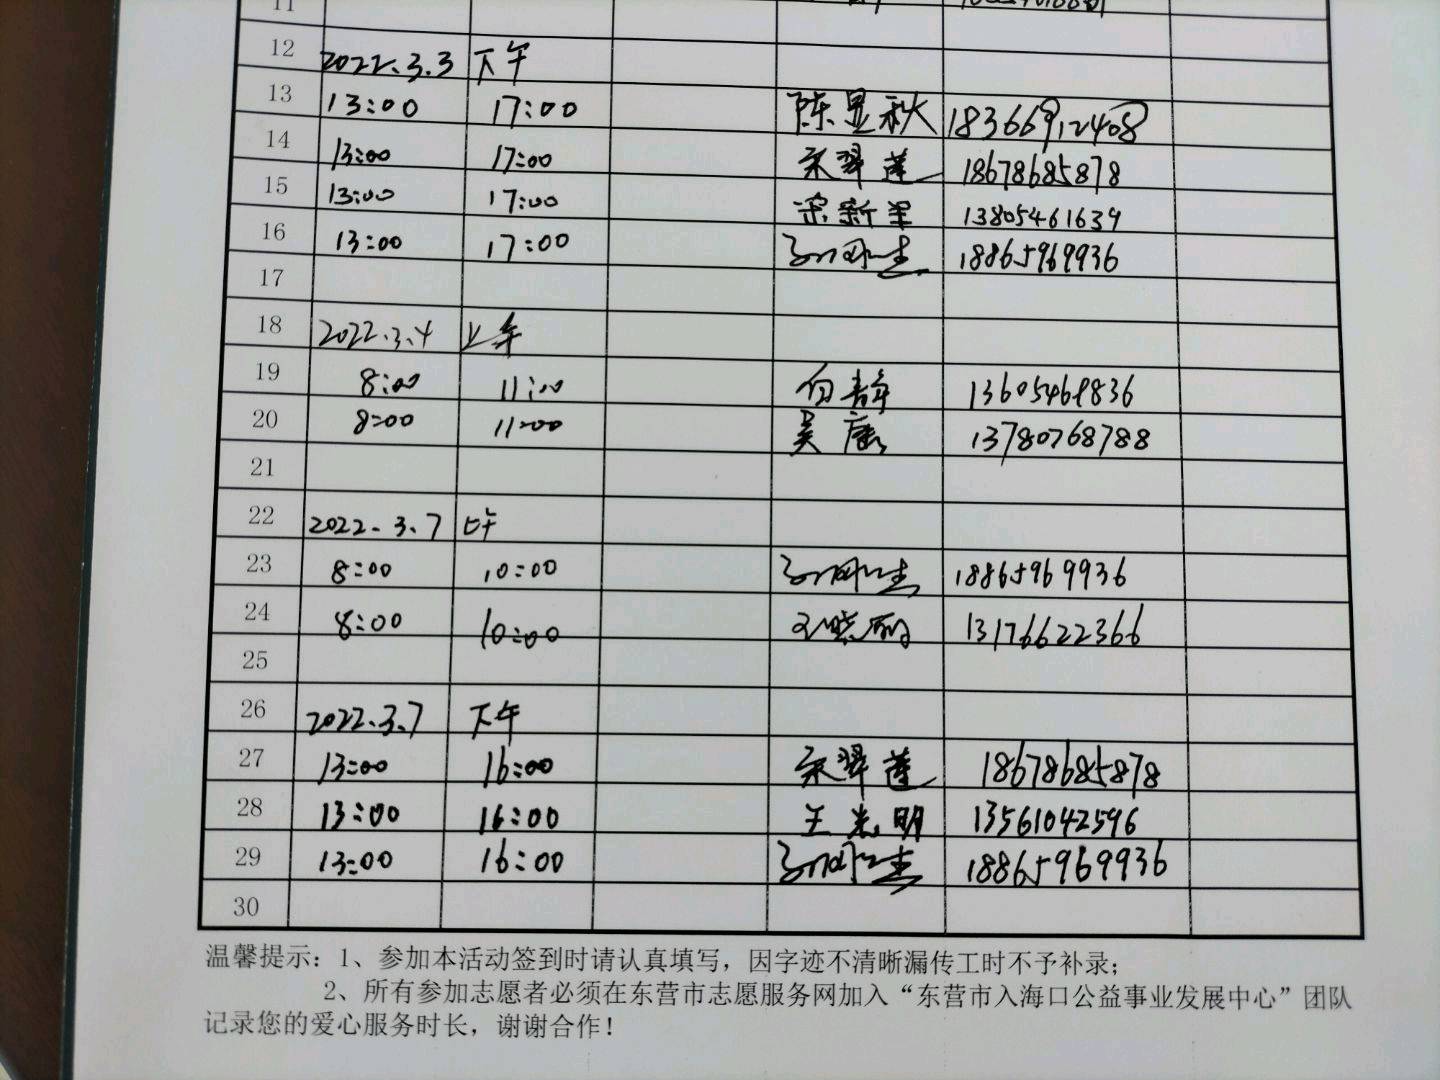 11
12 2022.3.3 下午
13 13:00 17:00 陈显秋 18366912408
14 13:00 17:00 宋翠莲 18678685878
15 13:00 17:00 宗新军 13805461639
16 13:00 17:00 18865969936
17
18 2022.3.4 上午
19 8:00 11:00 白静 13605469836
20 8:00 11:00 吴康 13780768788
21
22 2022.3.7 上午
23 8:00 10:00 18865969936
24 8:00 10:00 王晓丽 13176622366
25
26 2022.3.7 下午
27 13:00 16:00 宋翠莲 18678685878
28 13:00 16:00 王光明 13561042596
29 13:00 16:00 18865969936
30
温馨提示：1、参加本活动签到时请认真填写，因字迹不清晰漏传工时不予补录；
2、所有参加志愿者必须在东营市志愿服务网加入“东营市入海口公益事业发展中心”团队
记录您的爱心服务时长，谢谢合作！